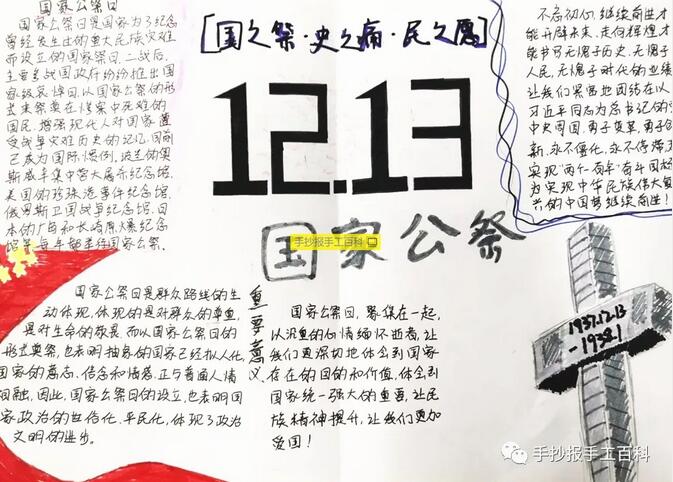 国家公祭日
国家公祭日是国家为了纪念
曾经发生过的重大民族灾难
而设立的国家祭日。二战后,
主要参战国政府纷纷推出国
家级哀悼日,以国家公祭的形
式来祭奠在惨案中死难的
国民,增强现代人对国家遭
受战争灾难历史的记忆,国祭
已成为国际惯例,波兰的奥
斯威辛集中营大屠杀纪念馆,
美国的珍珠港事件纪念馆,
俄罗斯卫国战争纪念馆,日
本的广岛和长崎原爆纪念
馆等每年都举行国家公祭。
[国之祭·史之痛·民之愿]
12.13
国家公祭
手抄报手工百科
不忘初心,继续前进才
能开辟未来,走向辉煌才
能书写无愧于历史、无愧于
人民、无愧于时代的业绩
让我们紧密地团结在以
习近平同志为总书记的
中央周围,勇于变革,勇于创
新,永不僵化,永不停滞,
实现“两个一百年”奋斗目标
为实现中华民族伟大复
兴的中国梦继续前进!
国家公祭日是群众路线的生
动体现,体现的是对群众的尊重,
是对生命的敬畏。而以国家公祭日的
形式奠祭,也表明抽象的国家已经拟人化,
国家的意志、信念和情感,正与普通人情
相融,因此,国家公祭日的设立,也表明国
家政治的世俗化、平民化,体现了政治
文明的进步。
重要意义
国家公祭日,聚集在一起,
以沉重的心情缅怀逝者,让
我们更深切地体会到国家
存在的目的和价值,体会到
国家统一强大的重要,让民
族精神提升,让我们更加
爱国!
1937.12.13
-1938.1
手抄报手工百科